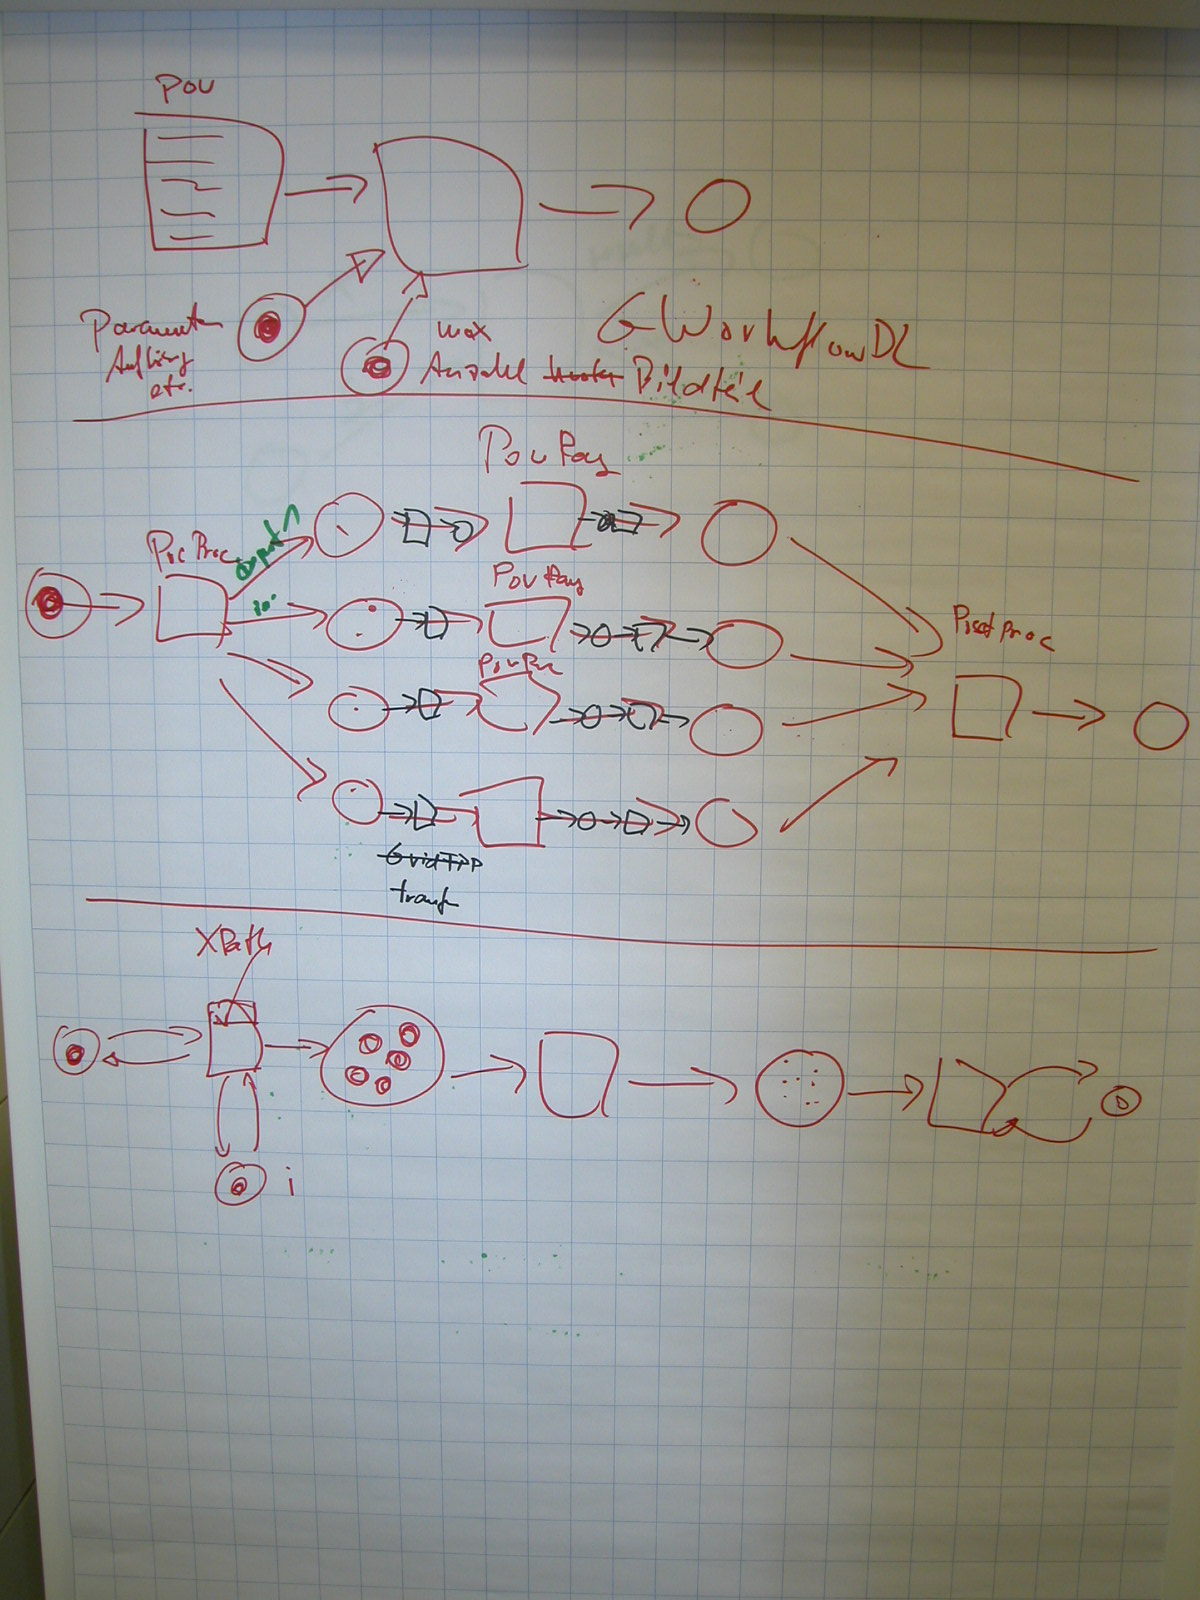 POV
Parameter
Auflösung
etc.
max
Anzahl Bildteile
GWorkflowDL
PovRay
PreProc
output 1
PovRay
PovRay
PostProc
GridFTP
transfer
XPath
i